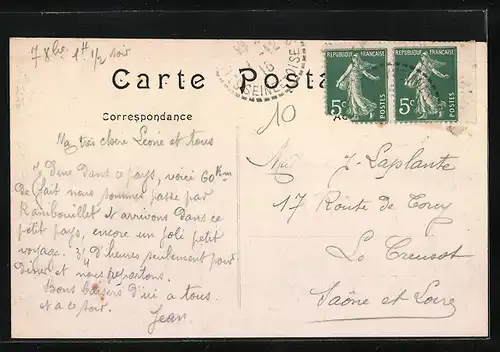 7 8bre 1h 1/2 soir
Carte Posta
Correspondance
SEINE
REPUBLIQUE FRANÇAISE
5c POSTES
REPUBLIQUE FRANÇAISE
5c POSTES
10
Ma très chère Léonie et tous
dans ce pays, voici 60 Km
de fait nous sommes passé par
Rambouillet et arrivons dans ce
petit pays, encore un joli petit
voyage. d'heures seulement pour
dîner et nous repartons.
Bons baisers d'ici a tous
et a ce soir.
Jean
J. Laplante
17 Route de Torcy
Le Creusot
Saône et Loire